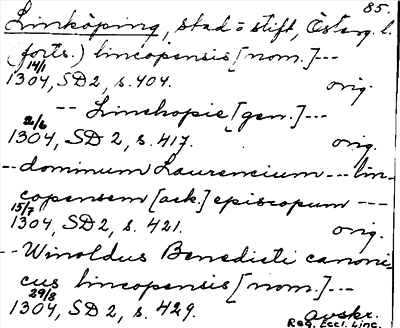 85.
Linköping, stad o stift, Österg. l.
(forts.) lincopensis [nom.] ---
14/1
1304, SD 2, s. 404. orig.
-- Linchopie [gen.] ---
2/6
1304, SD 2, s. 417. orig.
-- dominum Laurencium --- lin-
copensem [ack.] episcopum ---
15/7
1304, SD 2, s. 421. orig.
-- Winoldus Benedicti canoni-
cus lincopensis [nom.] ---
29/8
1304, SD 2, s. 429. avskr.
Reg. Eccl. Linc.